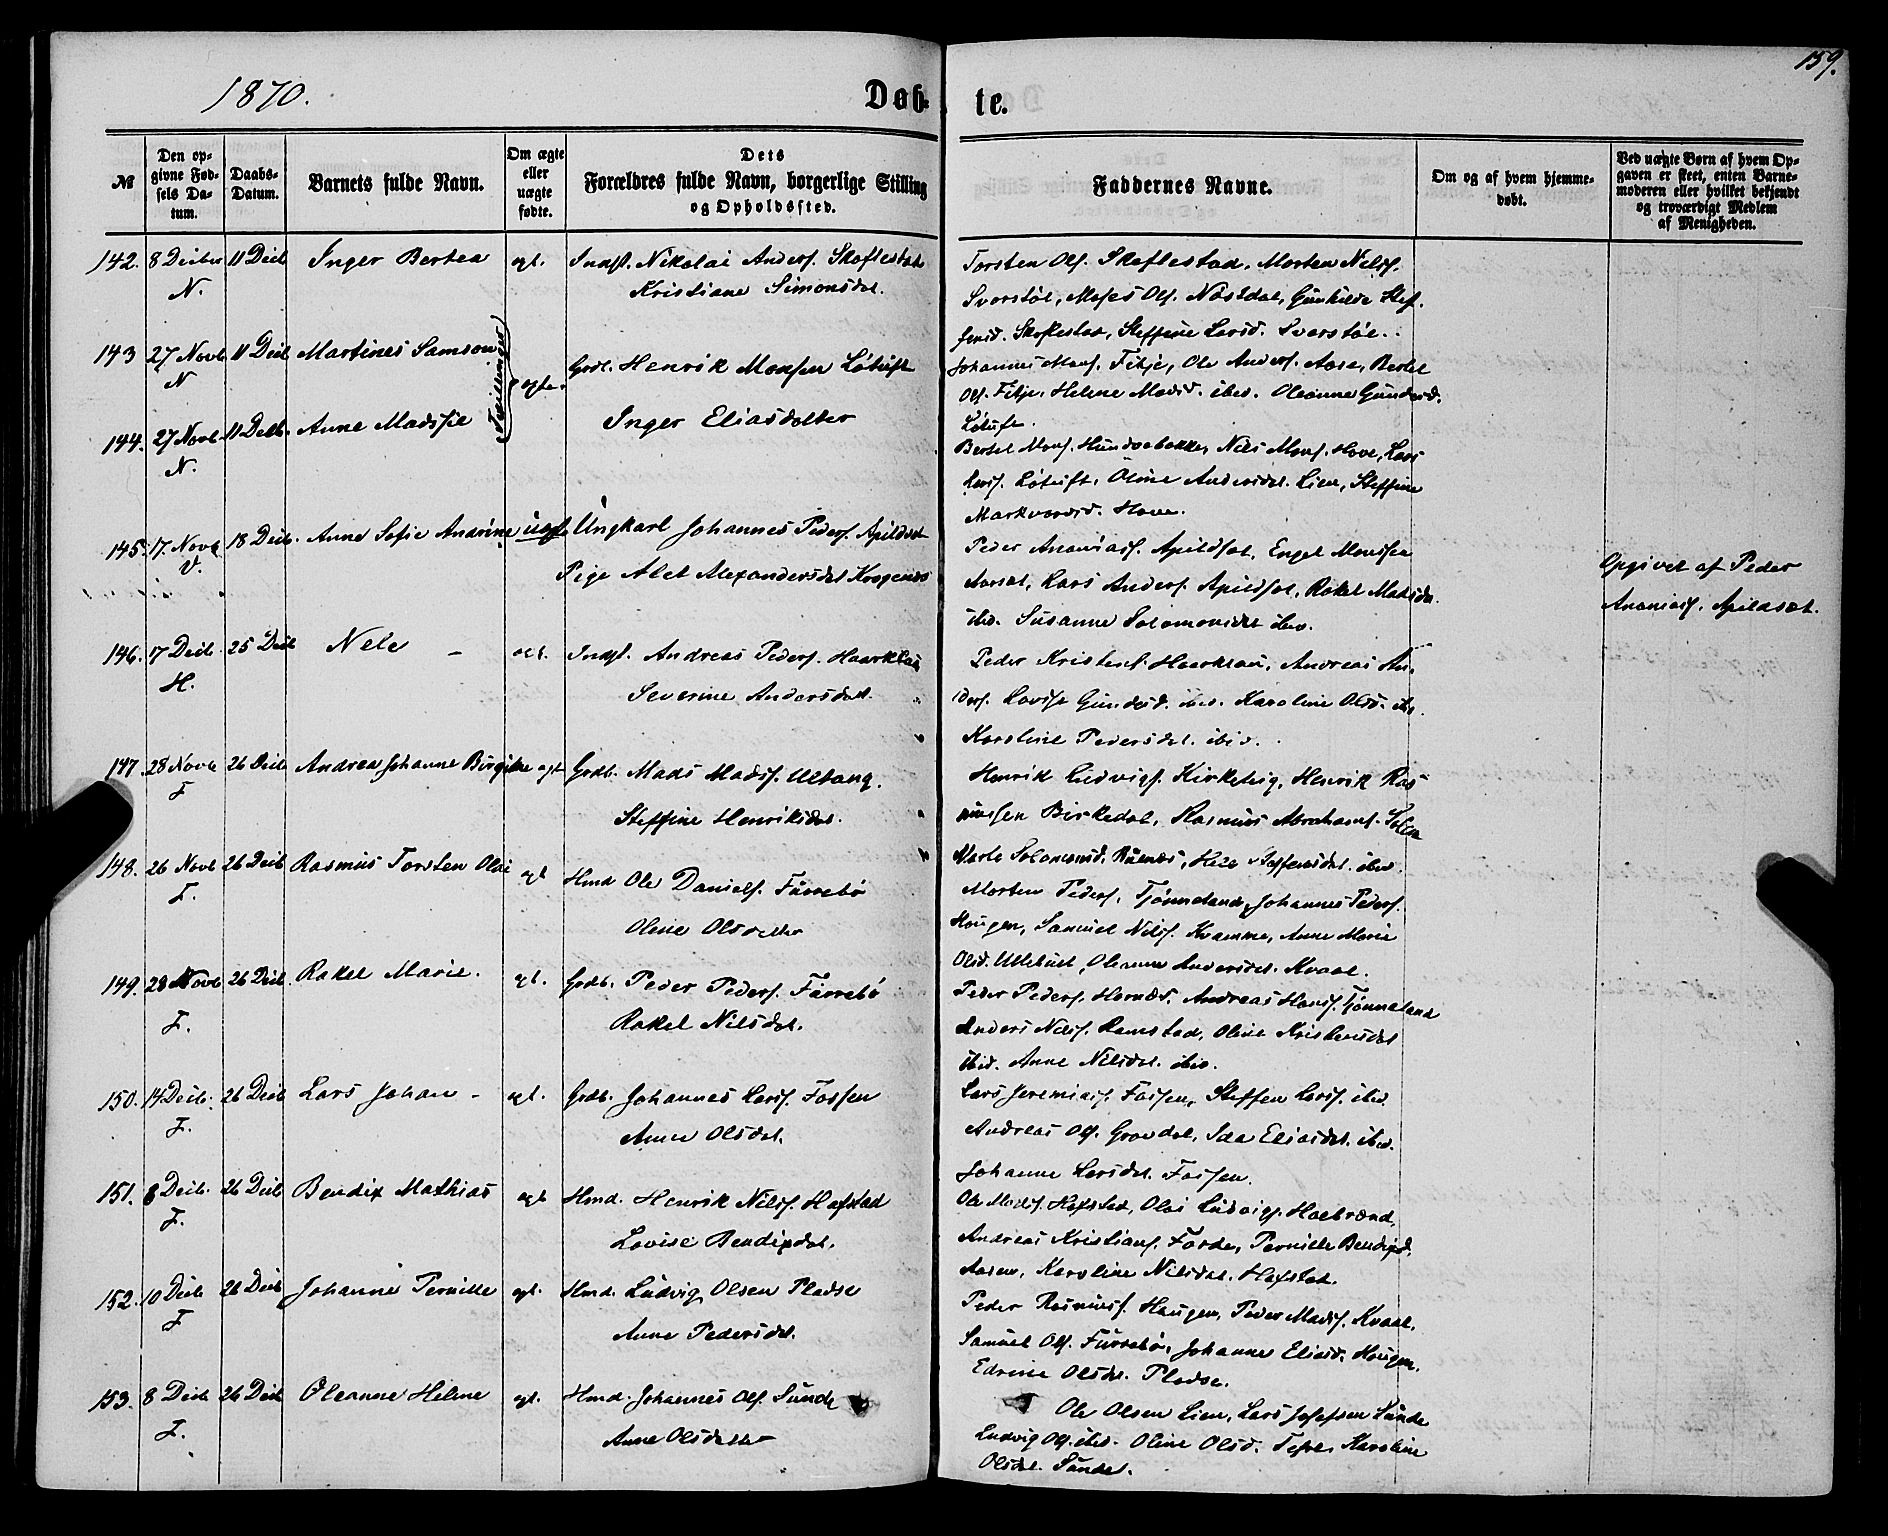 159.
1870.
Døb- te.
№
Den op-
givne Fød-
sels Da-
tum.
Daabs-
Datum.
Barnets fulde Navn.
Om ægte
eller
uægte
fødte.
Dets
Forældres fulde Navn, borgerlige Stilling
og Opholdssted.
Faddernes Navne.
Om og af hvem hjemme-
døbt.
Ved uægte Børn af hvem Op-
gaven er skeet, enten Barne-
moderen eller hvilket bekjendt
og troværdigt Medlem
af Menigheden.
142. 8 Decber 11 Decb Inger Bertea ægt. Indst. Nikolai Anders. Skoflestad
N. Kristiane Simonsdat.
Torsten Ols. Skoflestad, Morten Nels.
Svorstøl, Moses Ols. Nøstdal, Gunhilde Stef-
fensd. Skoflestad, Steffine Larsd. Svorstøl.
143 27 Novb 11 Decb Martines Samson Tvillinger ægte Grdb. Henrik Monsen Løtuft
N
Johannes Mons. Fitje, Ole Anders. Aase, Bertel
Ols. Fitje, Helene Madsd. ibid. Oleanne Gundersd.
Løtuft.
144. 27 Novb 11 Decb. Anne Madssie Inger Eliasdatter
N.
Bertel Mons. Hundvebakke, Nils Mons. Hove, Lars
Lars. Løtuft, Oline Andersdat. Lien, Steffine
Markvardsd. Hove.
145. 17 Novb 18 Decb. Anne Sofie Andrine uægt. Ungkarl Johannes Peders. Apildset
V. Pige Alet Alexandersdat Krogenes
Peder Ananias. Apildset, Engel Monsen
Aarset, Lars Anders. Apildset, Rakel Matsdat.
ibid. Susanne Solomonsdat ibid.
Opgivet af Peder
Ananias. Apildset.
146. 17 Decb. 25 Decb Nele - ægt. Indst. Andreas Peders. Haarklau
H. Severine Andersdat.
Peder Kristens. Haarklau, Andreas An-
ders. Lovise Gundersd. ibid. Karoline Olsd. ibid.
Karoline Pedersdat. ibid.
147. 28 Novb 26 Decb Andrea Johanne Birgitte ægt Grdb. Mads Mads. Ultang.
F Steffine Henriksdat.
Henrik Ludvigs. Kirketeig, Henrik Ras-
mussen Birkedal, Rasmus Abrahams. Solem
Marte Solomonsd. Steffensdat. ibid.
148. 26 Novb 26 Decb Rasmus Torsten Olai ægt Hmd Ole Daniels. Furrebø
F. Oline Olsdatter
Morten Peders. Tjønneland, Johannes Peders.
Hougen, Samuel Nils. Kvamme, Anne Marie
Olsd. Ulltuft, Oleanne Andersdat. Kvaal.
149. 28 Novb 26 Decb. Rakel Marie. ægt. Grdb. Peder Peders. Furrebø
F. Rakel Nilsdat.
Peder Peders. Hornes, Andreas Hans. Tjønneland
Anders Nils. Ramstad, Oline Kristensdat
ibid. Anne Nilsdat. ibid.
150. 14 Decb. 26 Decb Lars Johan - ægt. Grdb. Johannes Lars. Fossen
F. Anne Olsdat.
Lars Jeremias. Fossen, Steffen Lars. ibid.
Andreas Ols. Grovdal, Ida Eliasdat. ibid.
Johanne Larsdat. Fossen.
151. 8 Decb. 26 Decb Bendix Mathias ægt Hmd. Henrik Nils. Hafstad
F. Lovise Bendixdat.
Ole Mads. Hafstad, Olai Ludvigs. Halbrend,
Andreas Kristians. Førde, Pernille Bendixd.
Aasen, Karoline Nilsdat. Hafstad.
152. 10 Decb 26 Decb Johanne Pernille ægt. Hmd. Ludvig Olsen Pladse
F Anne Pedersdat.
Peder Rasmus. Haugen, Peder Mads. Kvaal,
Samuel Ols. Furrebø, Johanne Eliasd. Hougen.
Edrine Olsdat. Pladse.
153. 8 Decb 26 Decb Oleanne Helene ægt. Hmd. Johannes Ols. Sunde
F. Anne Olsdatter
Ole Olsen Lien, Lars Josefsen Sunde
Ludvig Ols. ibid. Oline Olsd. Tefre, Karoline
Olsdat. Sunde.